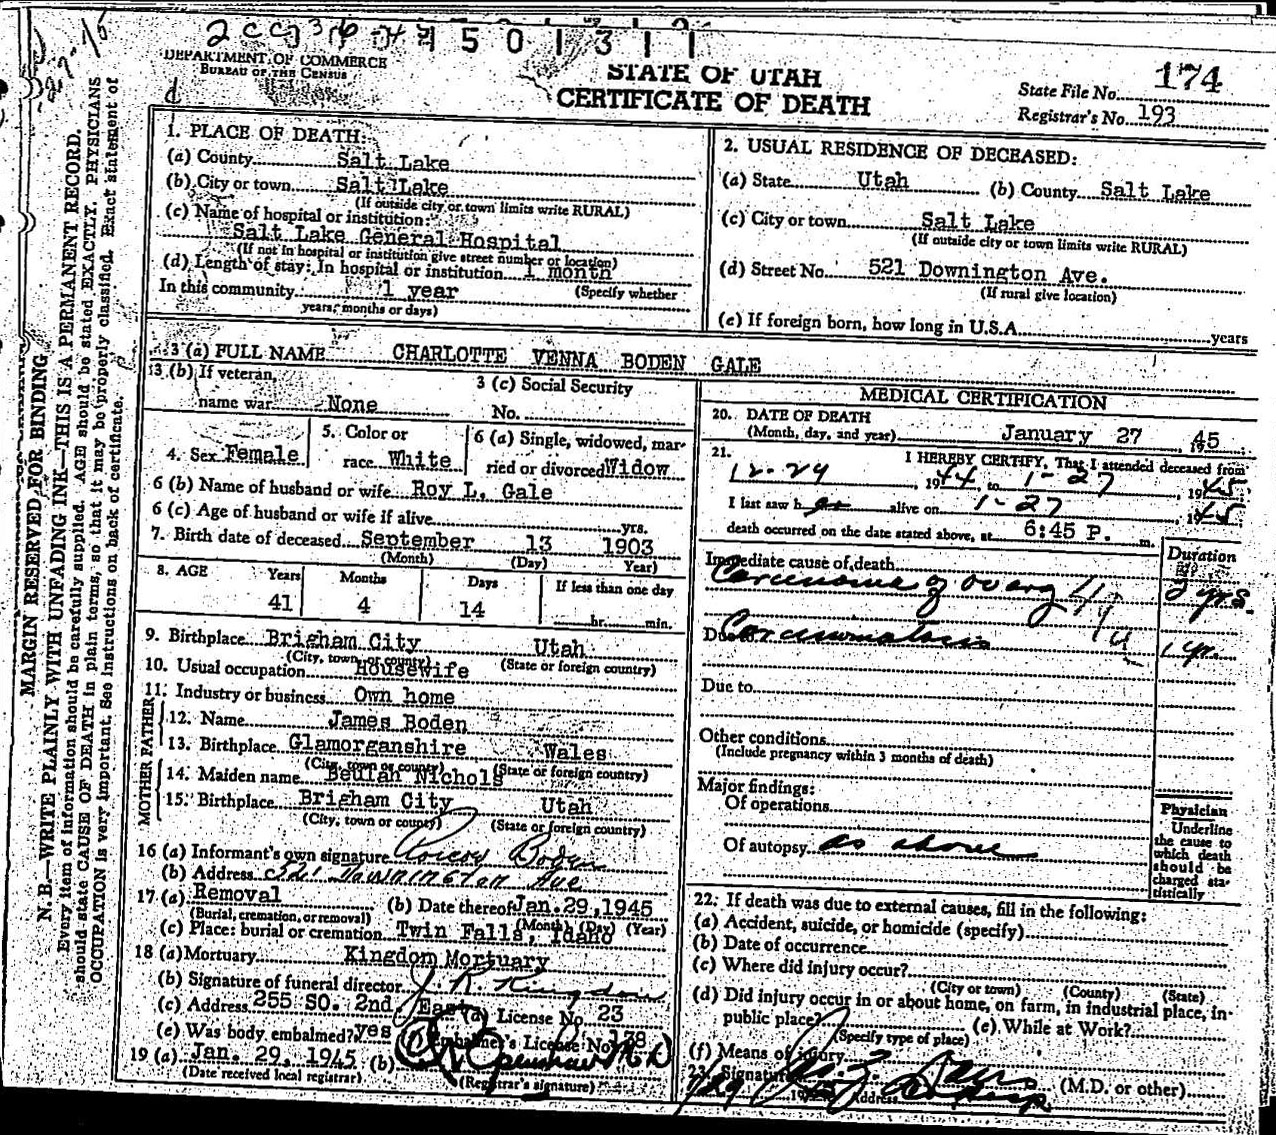 2 CC 36
501311
DEPARTMENT OF COMMERCE
BUREAU OF THE CENSUS
STATE OF UTAH
CERTIFICATE OF DEATH
State File No. 174
Registrar's No. 193
MARGIN RESERVED FOR BINDING
N. B.—WRITE PLAINLY WITH UNFADING INK—THIS IS A PERMANENT RECORD.
Every item of information should be carefully supplied. AGE should be stated EXACTLY. PHYSICIANS
should state CAUSE OF DEATH in plain terms, so that it may be properly classified. Exact statement of
OCCUPATION is very important. See instructions on back of certificate.
1. PLACE OF DEATH:
(a) County Salt Lake
(b) City or town Salt Lake
(If outside city or town limits write RURAL)
(c) Name of hospital or institution:
Salt Lake General Hospital
(If not in hospital or institution give street number or location)
(d) Length of stay: In hospital or institution 1 month
In this community 1 year (Specify whether
years, months or days)
2. USUAL RESIDENCE OF DECEASED:
(a) State Utah (b) County Salt Lake
(c) City or town Salt Lake
(If outside city or town limits write RURAL)
(d) Street No. 521 Downington Ave.
(If rural give location)
(e) If foreign born, how long in U.S.A. years
3 (a) FULL NAME CHARLOTTE VENNA BODEN GALE
3 (b) If veteran, name war None
3 (c) Social Security No.
4. Sex Female
5. Color or race White
6 (a) Single, widowed, married or divorced Widow
6 (b) Name of husband or wife Roy L. Gale
6 (c) Age of husband or wife if alive yrs.
7. Birth date of deceased September 13 1903
(Month) (Day) Year)
8. AGE Years Months Days If less than one day
41 4 14 hr. min.
9. Birthplace Brigham City Utah
(City, town, or county) (State or foreign country)
10. Usual occupation Housewife
11. Industry or business Own home
FATHER
12. Name James Boden
13. Birthplace Glamorganshire Wales
(City, town or county) (State or foreign country)
MOTHER
14. Maiden name Beulah Nichols
15. Birthplace Brigham City Utah
(City, town or county) (State or foreign country)
16 (a) Informant's own signature Roscoe Boden
(b) Address 521 Downington Ave
17 (a) Removal (b) Date thereof Jan. 29, 1945
(Burial, cremation, or removal) (Month) (Day) (Year)
(c) Place: burial or cremation Twin Falls, Idaho
18 (a) Mortuary Kingdom Mortuary
(b) Signature of funeral director J. R. Kingdon
(c) Address 255 SO. 2nd East (d) License No. 23
(e) Was body embalmed? yes Embalmer's License No.
19 (a) Jan. 29, 1945 (b)
(Date received local registrar) (Registrar's signature)
MEDICAL CERTIFICATION
20. DATE OF DEATH
(Month, day, and year) January 27 1945
21. I HEREBY CERTIFY, That I attended deceased from
12-29, 1944 to 1-27, 1945
I last saw her alive on 1-27, 1945
death occurred on the date stated above, at 6:45 P. m.
Immediate cause of death Duration
Carcinoma of ovary 2 yrs.
Due to Carcinomatosis 1 yr.
Due to
Other conditions
(Include pregnancy within 3 months of death)
Major findings:
Of operations
Of autopsy as above
Physician
Underline
the cause to
which death
should be
charged sta-
tistically
22. If death was due to external causes, fill in the following:
(a) Accident, suicide, or homicide (specify)
(b) Date of occurrence
(c) Where did injury occur?
(City or town) (County) (State)
(d) Did injury occur in or about home, on farm, in industrial place, in
public place? (e) While at Work?
(Specify type of place)
(f) Means of injury
23. Signature (M.D. or other)
Address